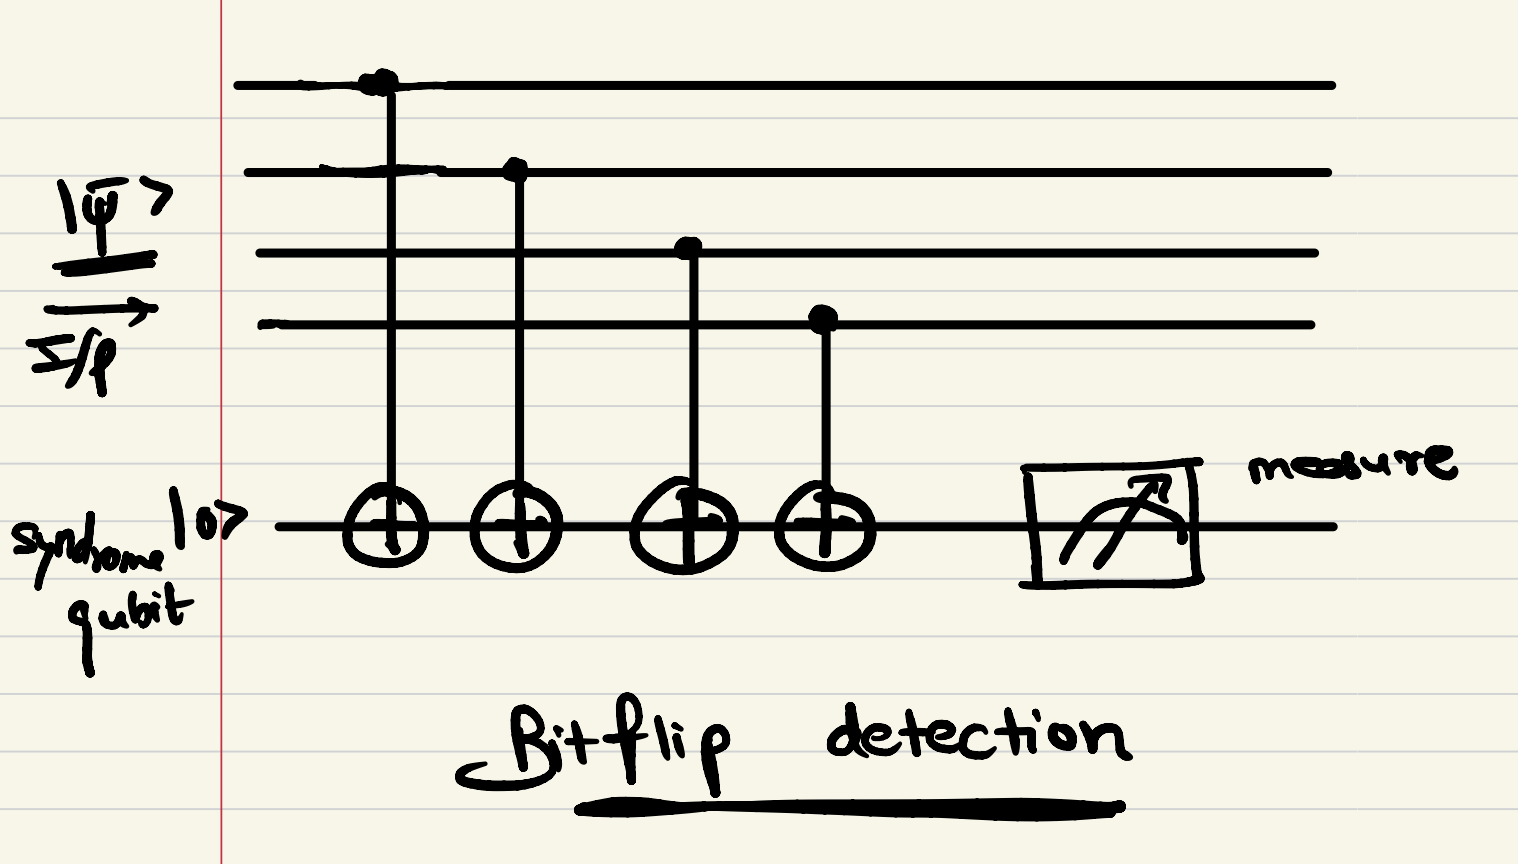 |ψ̅>
I/p
|0>
syndrome
qubit
measure
Bitflip detection